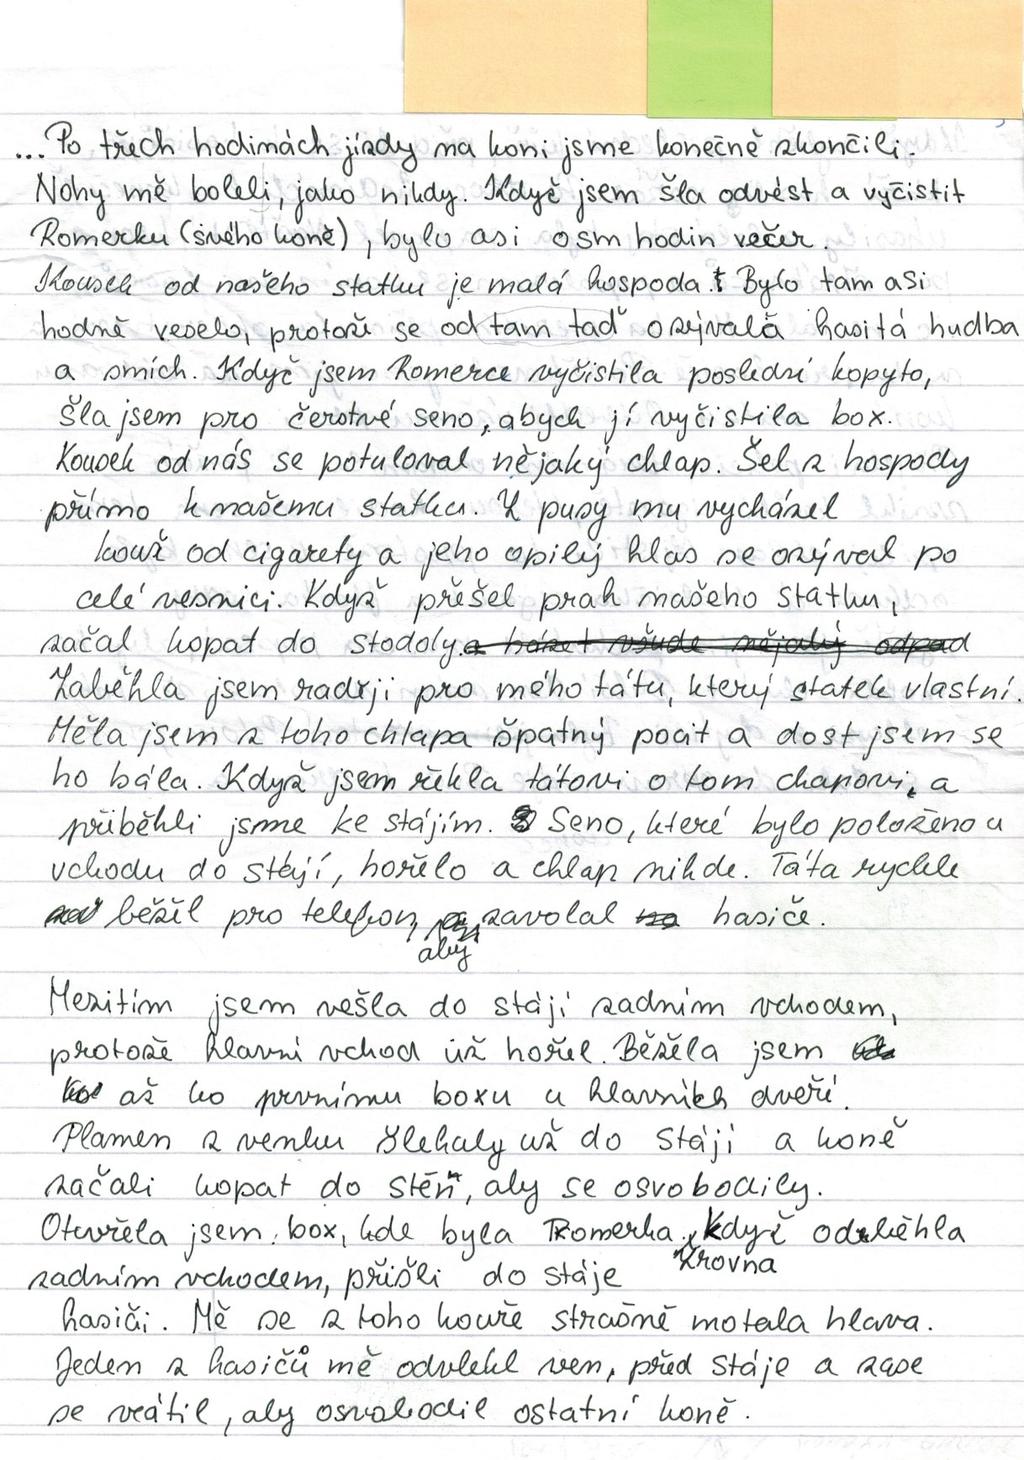 ... Po třech hodinách jízdy na koni jsme konečně skončili.
Nohy mě boleli, jako nikdy. Když jsem šla odvést a vyčistit
Romerku (svého koně), bylo asi osm hodin večer.
Kousek od našeho statku je malá hospoda. Bylo tam asi
hodně veselo, protože se od tam tad ozývala hasitá hudba
a smích. Když jsem Romerce vyčistila poslední kopyto,
šla jsem pro čerstvé seno, abych jí vyčistila box.
Kousek od nás se potuloval nějaký chlap. Šel z hospody
přímo k našemu statku. Z pusy mu vycházel
kouř od cigarety a jeho opilý hlas se ozýval po
celé vesnici. Když přešel prah našeho statku,
začal kopat do stodoly a házet všude nějaký odpad
Zaběhla jsem radši pro mého tátu, který statek vlastní.
Měla jsem z toho chlapa špatný pocit a dost jsem se
ho bála. Když jsem řekla tátovi o tom chapovi, a
přiběhli jsme ke stájím. Seno, které bylo položeno u
vchodu do stájí, hořelo a chlap nikde. Táta rychle
běžil pro telefon, zavolal hasiče.
aby
Mezitím jsem vešla do stájí zadním vchodem,
protože hlavní vchod už hořel. Běžela jsem
až ko prvnímu boxu u hlavních dveří.
Plamen z venku šlehaly už do stájí a koně
začali kopat do stěn, aby se osvobodily.
Otevřela jsem box, kde byla Romerka. Když odběhla
Zrovna
zadním vchodem, přišli do stáje
hasiči. Mě se z toho kouře strašně motala hlava.
Jeden z hasičů mě odvlekl ven, před stáje a zase
se vrátil, aby osvobodil ostatní koně.